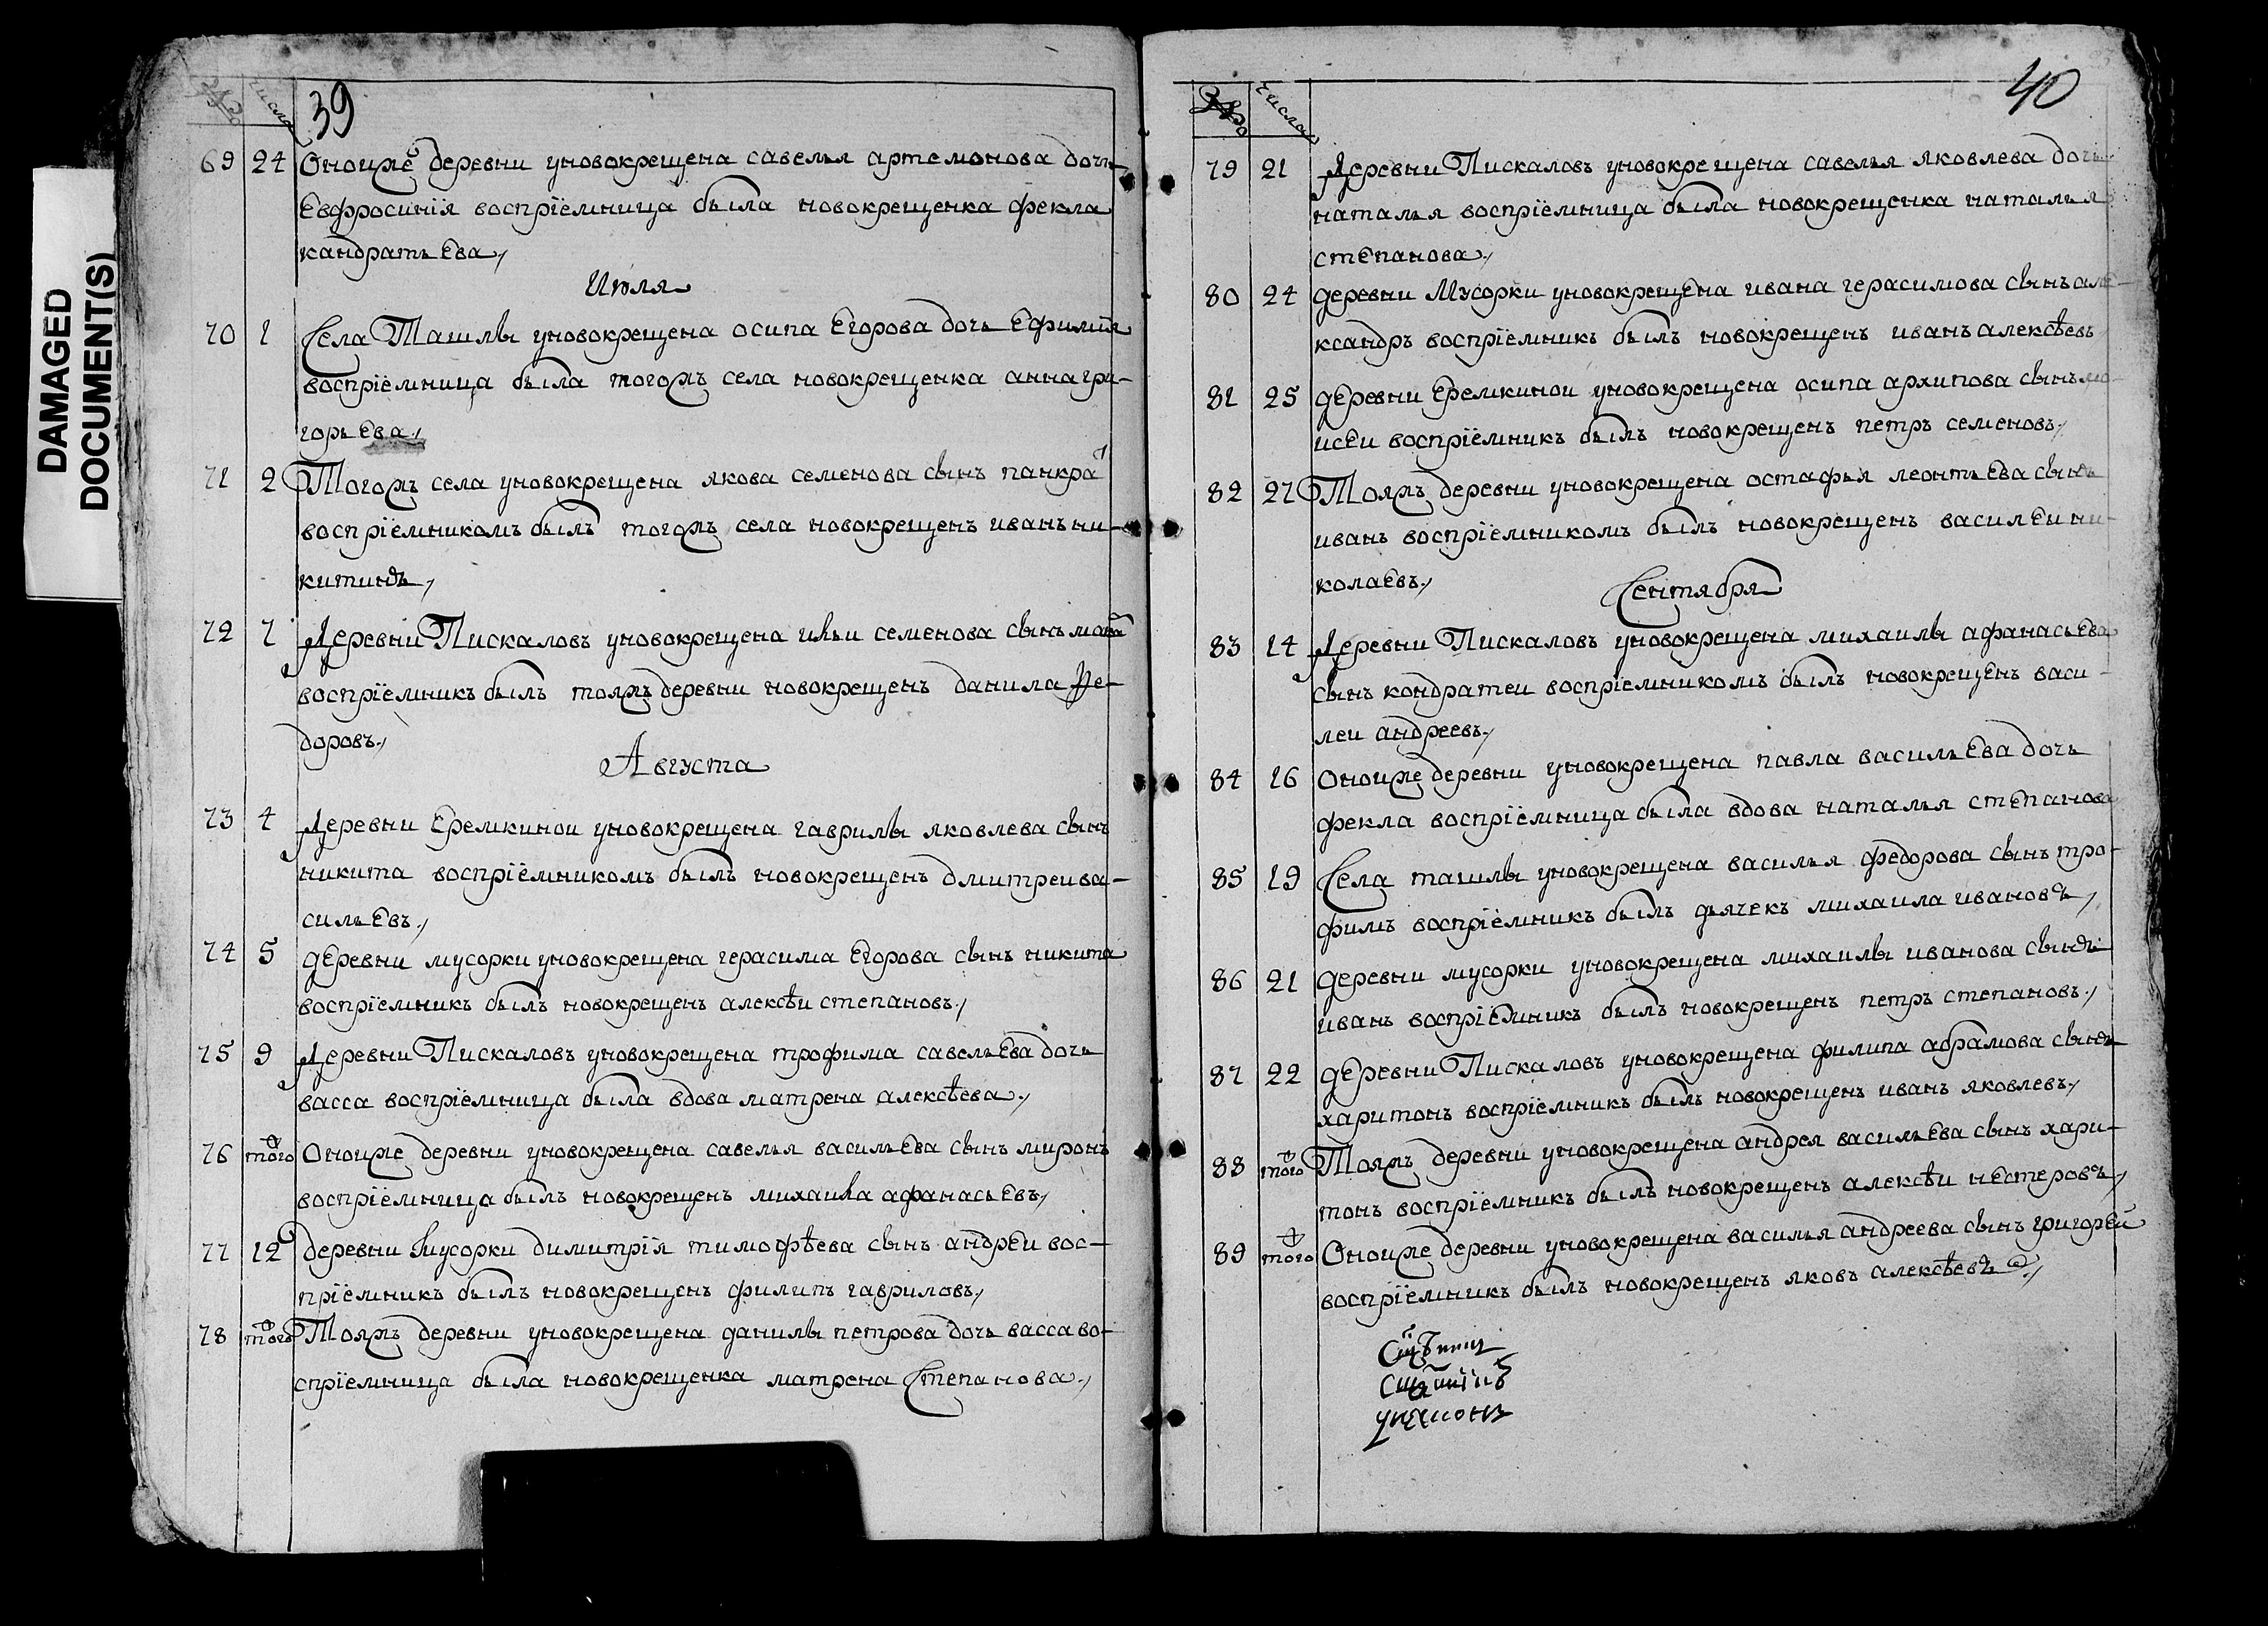 DAMAGED
DOCUMENT(S)
числа
39
69 24 Оноиже деревни уновокрещена савелья артемонова дочь
Евфросинїя воспрїемница была новокрещенка фекла
кандратьева,
Июля
70 1 Села Ташлы уновокрещена осипа Егорова дочь Ефимия
воспрїемница была тогожъ села новокрещенка анна гри-
горьева,
71 2 Тогожъ села уновокрещена якова семенова сынъ панкра
воспрїемникомъ былъ тогожъ села новокрещенъ иванъ ни-
китинъ,
72 7 Деревни Пискаловъ уновокрещена ильи семенова сынъ
воспрїемникъ былъ тояжъ деревни новокрещенъ данила Фе-
доровъ,
Августа
73 4 Деревни Еремкинои уновокрещена гаврилы яковлева сынъ
никита воспрїемникомъ былъ новокрещенъ дмитреи ва-
сильевъ,
74 5 деревни мусорки уновокрещена герасима Егорова сынъ никита
воспрїемникъ былъ новокрещенъ алексѣи степановъ,
75 9 Деревни Пискаловъ уновокрещена трофима савельева дочь
васса воспрїемница была вдова матрена алексѣева,
76 того Оноиже деревни уновокрещена савелья васильева сынъ миронъ
воспрїемница былъ новокрещенъ михаила афанасьевъ,
77 12 деревни Мусорки димитрїя тимофѣева сынъ андреи вос-
прїемникъ былъ новокрещенъ филипъ гавриловъ,
78 того Тояжъ деревни уновокрещена данилы петрова дочь васса во-
спрїемница была новокрещенка матрена Степанова,
числа
40
79 21 Деревни Пискаловъ уновокрещена савелья яковлева дочь
наталья воспрїемница была новокрещенка наталья
степанова,
80 24 деревни Мусорки уновокрещена ивана герасимова сынъ але-
ксандръ воспрїемникъ былъ новокрещенъ иванъ алексѣевъ
81 25 деревни Еремкинои уновокрещена осипа архипова сынъ мо-
исеи воспрїемникъ былъ новокрещенъ петръ семеновъ,
82 27 Тояжъ деревни уновокрещена остафья леонтьева сынъ
иванъ воспрїемникомъ былъ новокрещенъ василеи ни-
колаевъ,
Сентября
83 14 Деревни Пискаловъ уновокрещена михаилы афанасьева
сынъ кондратеи воспрїемникомъ былъ новокрещенъ васи-
леи андреевъ,
84 16 Оноиже деревни уновокрещена павла васильева дочь
фекла воспрїемница была вдова наталья степанова
85 19 Села ташлы уновокрещена василья федорова сынъ тро-
фимъ воспрїемникъ былъ дьячекъ михаила ивановъ,
86 21 деревни мусорки уновокрещена михаилы иванова сынъ
иванъ воспрїемникъ былъ новокрещенъ петръ степановъ,
87 22 деревни Пискаловъ уновокрещена филипа абрамова сынъ
харитонъ воспрїемникъ былъ новокрещенъ иванъ яковлевъ,
88 того Тояжъ деревни уновокрещена андрея васильева сынъ хари-
тонъ воспрїемникъ былъ новокрещенъ алексѣи нестеровъ,
89 того Оноиже деревни уновокрещена василья андреева сынъ григореи
воспрїемникъ былъ новокрещенъ яковъ алексѣевъ,